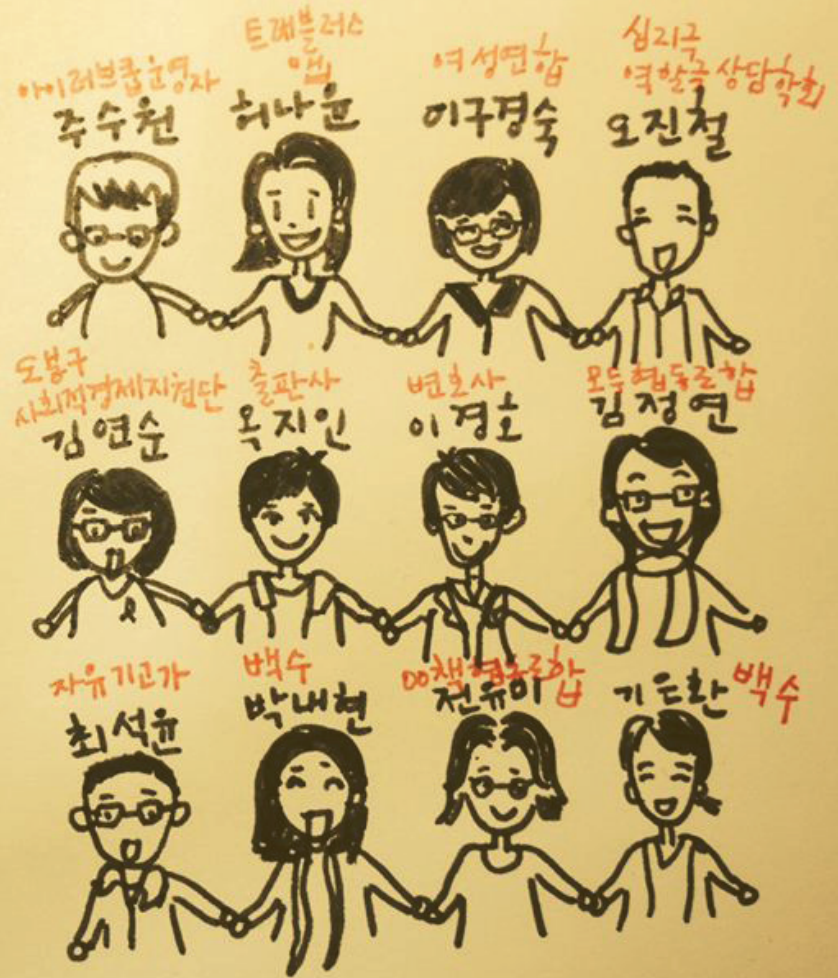 아이러브쿱운영자
주수원
트래블러스
맵
허나윤
여성연합
이구경숙
심리극
역할극상담학회
오진철
도봉구
사회적경제지원단
김연순
출판사
옥지인
변호사
이경호
모두협동조합
김정연
자유기고가
최석윤
백수
박내현
00책협동조합
전유미
기은환
백수